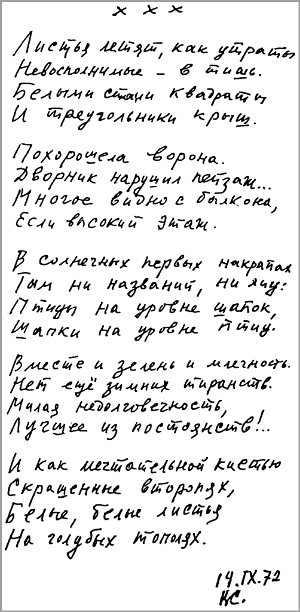 × × ×
Листья летят, как утраты
Невосполнимые – в тишь.
Белыми стали квадраты
И треугольники крыш.
Похорошела ворона.
Дворник нарушил пейзаж...
Многое видно с балкона,
Если высокий этаж.
В солнечных первых накрапах
Там ни названий, ни лиц:
Птицы на уровне шапок,
Шапки на уровне птиц.
Вместе и зелень и млечность.
Нет ещё зимних тиранств.
Милая недолговечность,
Лучшее из постоянств!..
И как мечтательной кистью
Скрашенные второпях,
Белые, белые листья
На голубых тополях.
14.IX.72
КС.